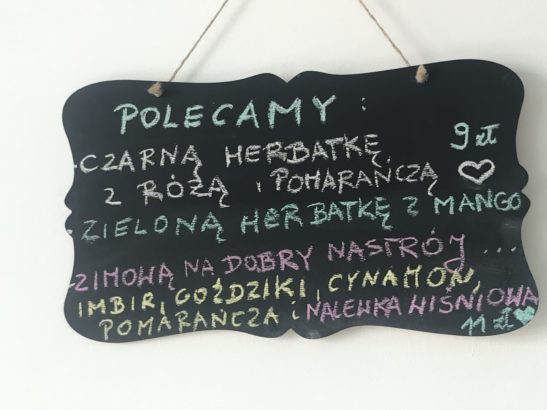 POLECAMY :
- CZARNĄ HERBATKĘ 9 zł
Z RÓŻĄ i POMARAŃCZĄ ♡
- ZIELONĄ HERBATKĘ Z MANGO
- ZIMOWĄ NA DOBRY NASTRÓJ ...
IMBIR, GOŹDZIKI, CYNAMON,
POMARAŃCZA i NALEWKA WIŚNIOWA
11 zł ♥